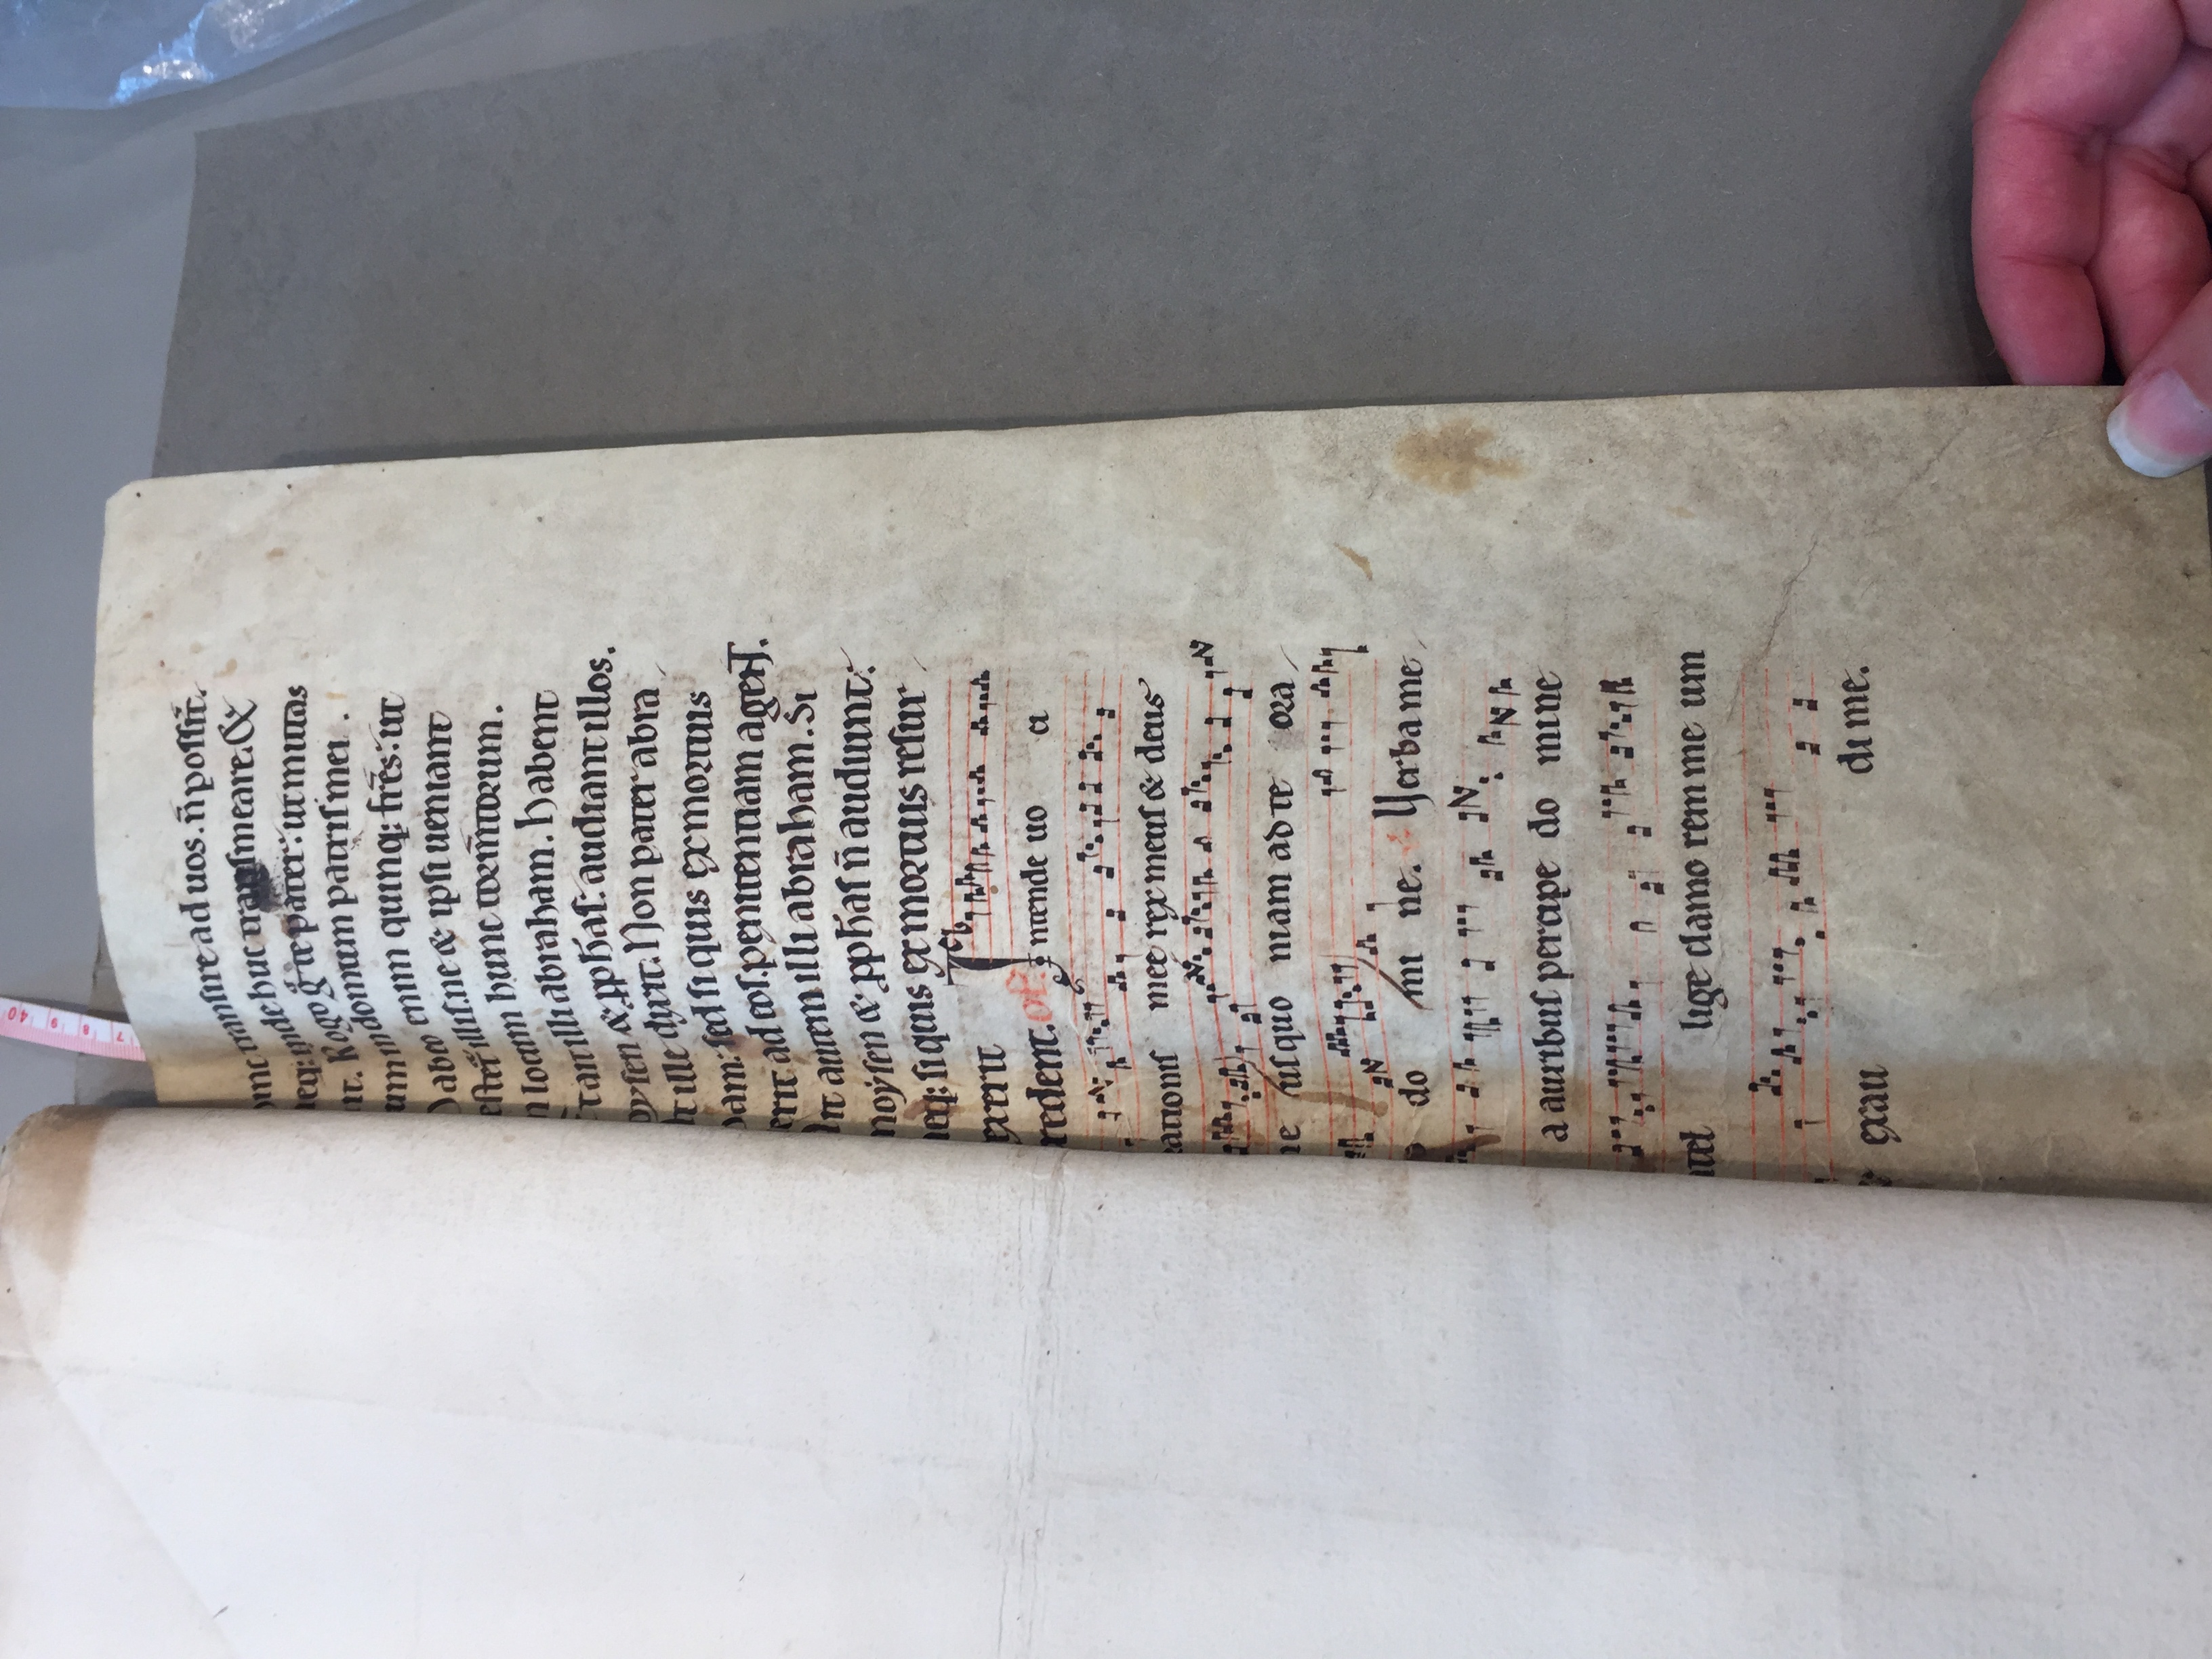 7 8 9 40
hinc transire ad uos. n̄ possīt.
neq; inde huc transmeare. &
it. Rogo g̊ te pater: ut mittas
um in domum patris mei.
habeo enim quinq; fr̄es: ut
estet̄ illis. ne & ipsi ueniant
n locum hunc torm̄torum.
Et ait illi abraham. habent
oysen & pph̄as: audiant illos.
At ille dixit. Non pater abra
ham: sed si quis ex mortuis
erit ad eos. penitentiam agent.
Ait autem illi abraham. Si
moysen & pph̄as n̄ audiunt:
neq; si quis ex mortuis resur
exerit
redent. of. Intende uo ci
rationis mee rex meus & deus
me us quo niam ad te ora
do mi ne. Verba me
a auribus percipe do mine
ntel lige clamo rem me um
& exau di me.